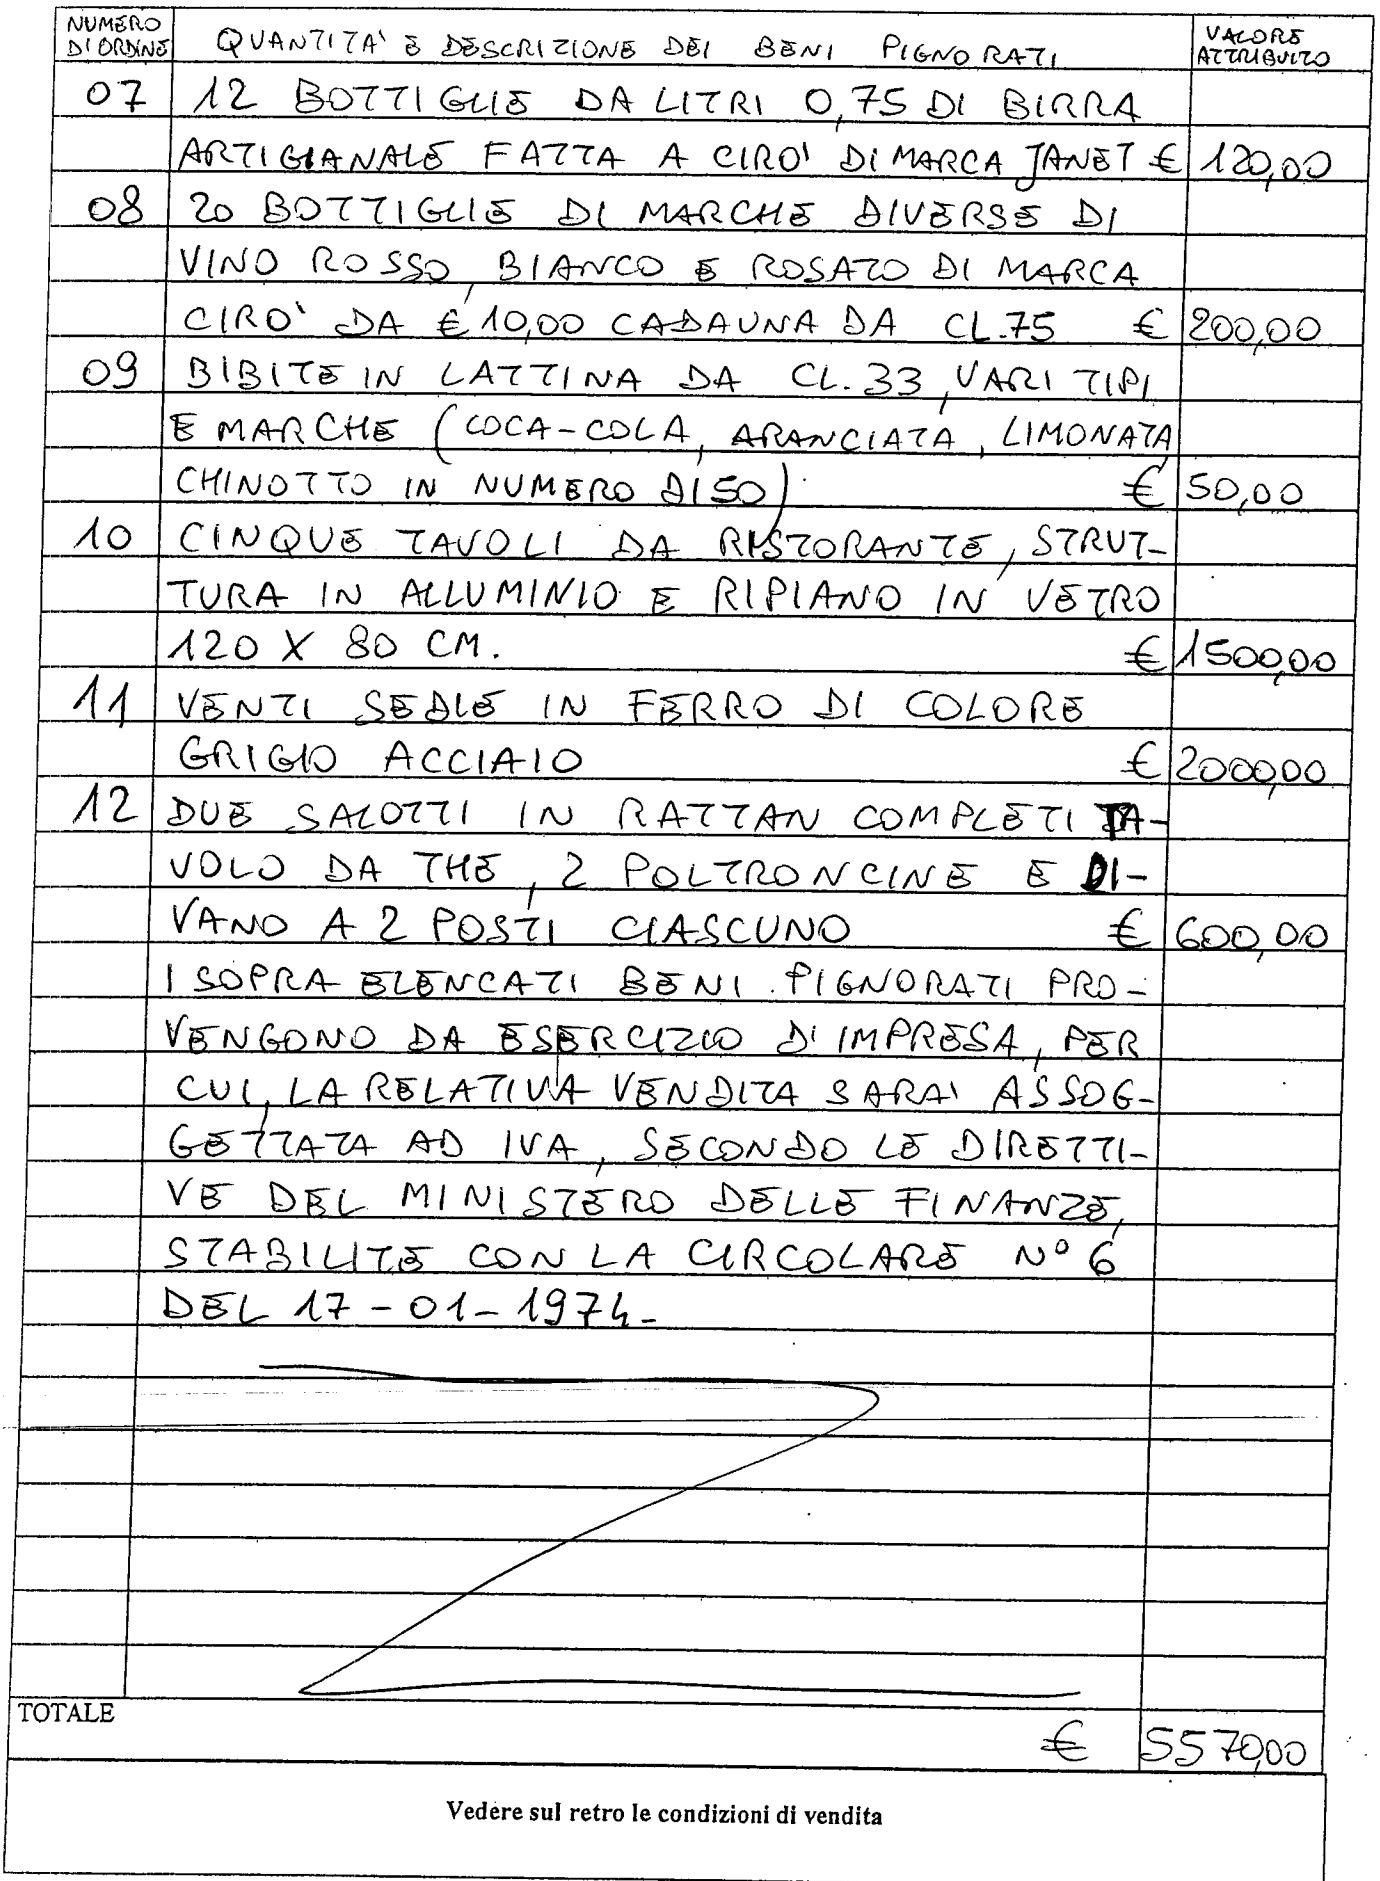 NUMERO DI ORDINE QUANTITA' E DESCRIZIONE DEI BENI PIGNORATI VALORE ATTRIBUITO
07 12 BOTTIGLIE DA LITRI 0,75 DI BIRRA
ARTIGIANALE FATTA A CIRO' DI MARCA JANET € 120,00
08 20 BOTTIGLIE DI MARCHE DIVERSE DI
VINO ROSSO, BIANCO E ROSATO DI MARCA
CIRO' DA € 10,00 CADAUNA DA CL.75 € 200,00
09 BIBITE IN LATTINA DA CL. 33, VARI TIPI
E MARCHE (COCA-COLA, ARANCIATA, LIMONATA,
CHINOTTO IN NUMERO DI 50) € 50,00
10 CINQUE TAVOLI DA RISTORANTE, STRUT-
TURA IN ALLUMINIO E RIPIANO IN VETRO
120 X 80 CM. € 1500,00
11 VENTI SEDIE IN FERRO DI COLORE
GRIGIO ACCIAIO € 2000,00
12 DUE SALOTTI IN RATTAN COMPLETI TA-
VOLO DA THE, 2 POLTRONCINE E DI-
VANO A 2 POSTI CIASCUNO € 600,00
I SOPRA ELENCATI BENI PIGNORATI PRO-
VENGONO DA ESERCIZIO D'IMPRESA, PER
CUI, LA RELATIVA VENDITA SARA' ASSOG-
GETTATA AD IVA, SECONDO LE DIRETTI-
VE DEL MINISTERO DELLE FINANZE,
STABILITE CON LA CIRCOLARE N° 6
DEL 17-01-1974-
TOTALE € 5570,00
Vedere sul retro le condizioni di vendita